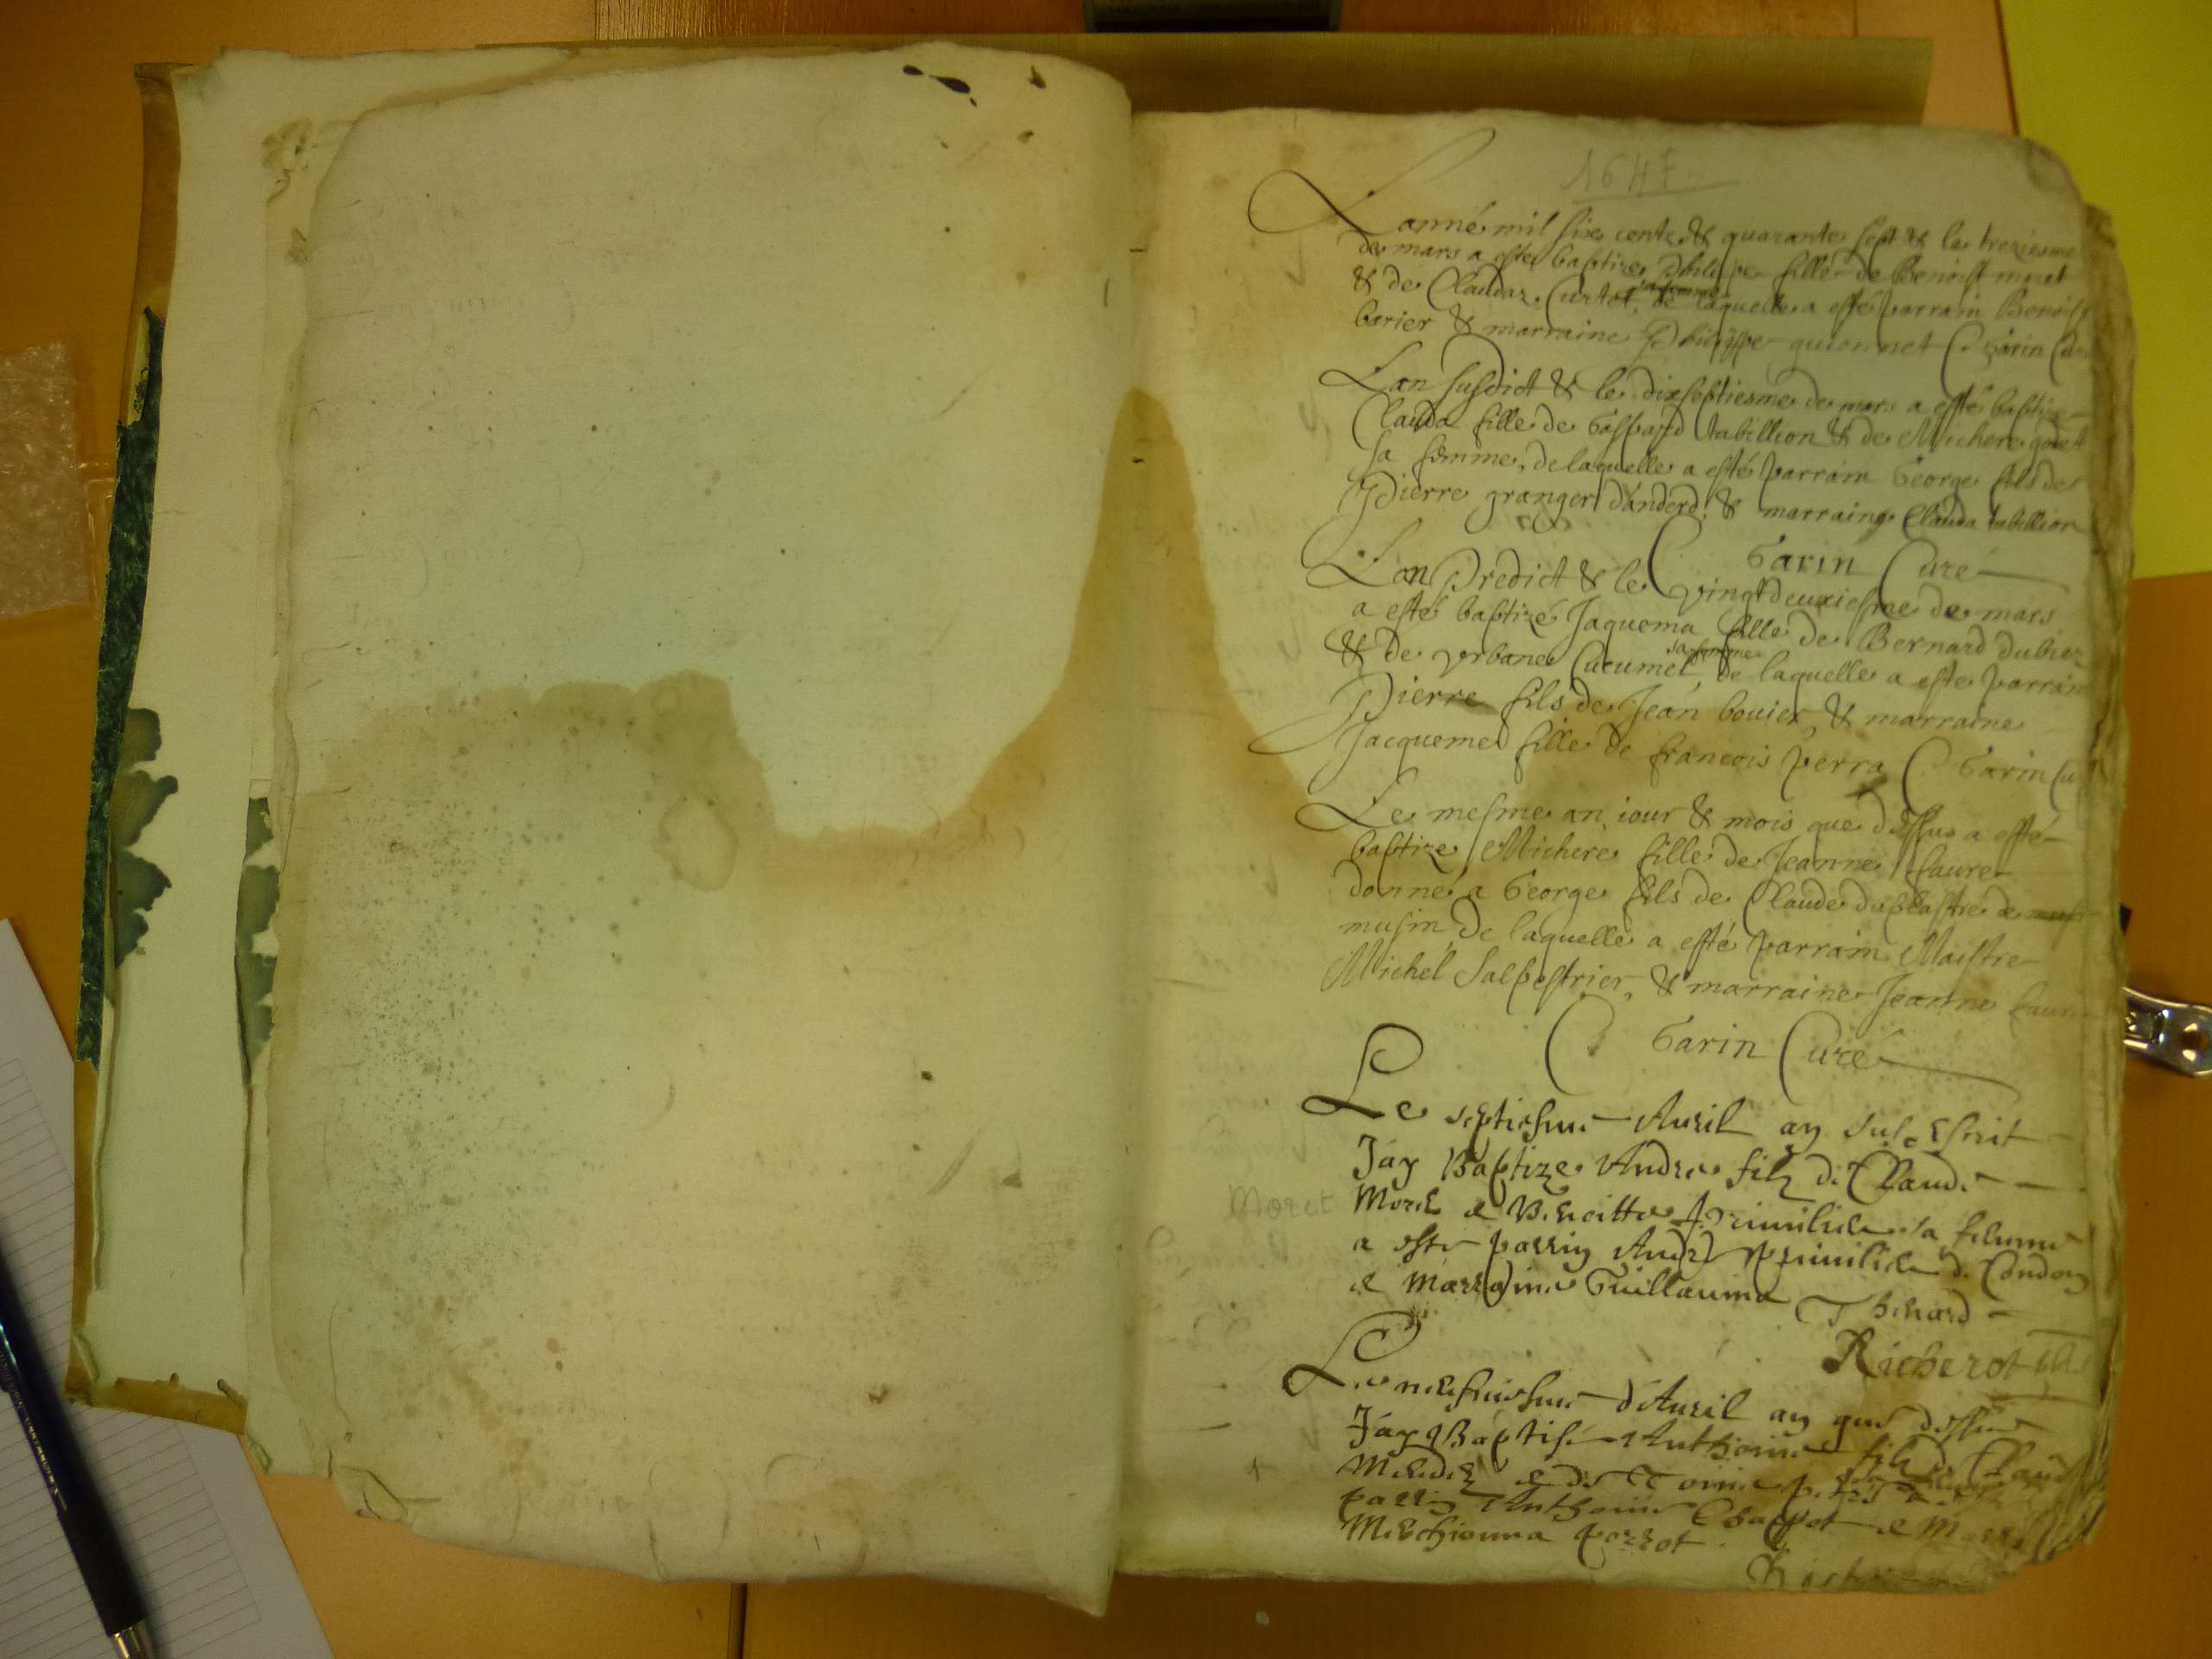 1647
L'anné mil six centz & quarante sept & le treziesme
de mars a esté baptize Philipe fille de Benoist moret
& de Claudaz Curtet sa femme de laquelle a esté parrain Benoist
borier & marraine Philippe guionnet C Garin Cur
Lan susdict & le dixseptiesme de mars a esté baptize
Clauda fille de Gaspard tabillion & de Michere godet
sa femme, de laquelle a esté parrain George fils de
Pierre granger d'anderd, & marraine Clauda tabillion
C. Garin Curé
Lan Predict & le vingtdeuxiesme de mars
a esté baptizé Jaquema fille de Bernard dubiez
& de vrbane Cucumel sa femme de laquelle a este parrain
Pierre fils de Jean bouier & marraine
Jacqueme fille de francois perra C. Garin Cu
Le mesme an, iour & mois que dessus a esté
baptize Michere fille de Jeanne faure
donné a George fils de Claude duplastre de
musin de laquelle a esté parrain Maistre
Michel Salpestrier, & marraine Jeanne faure
C. Garin Curé
Le septiesme Auril an susescrit
Jay Baptize Andre filz de Claude
Moret
Morel e Benoitte sa femme
a este parrin André de Condon
e Marraine Guillauma Thenard
Richerot
Le d'Auril an que dessus
Jay Baptisé Anthoine filz de Claud
e de
parrin Anthoine Chappot e
Melchionna porrot